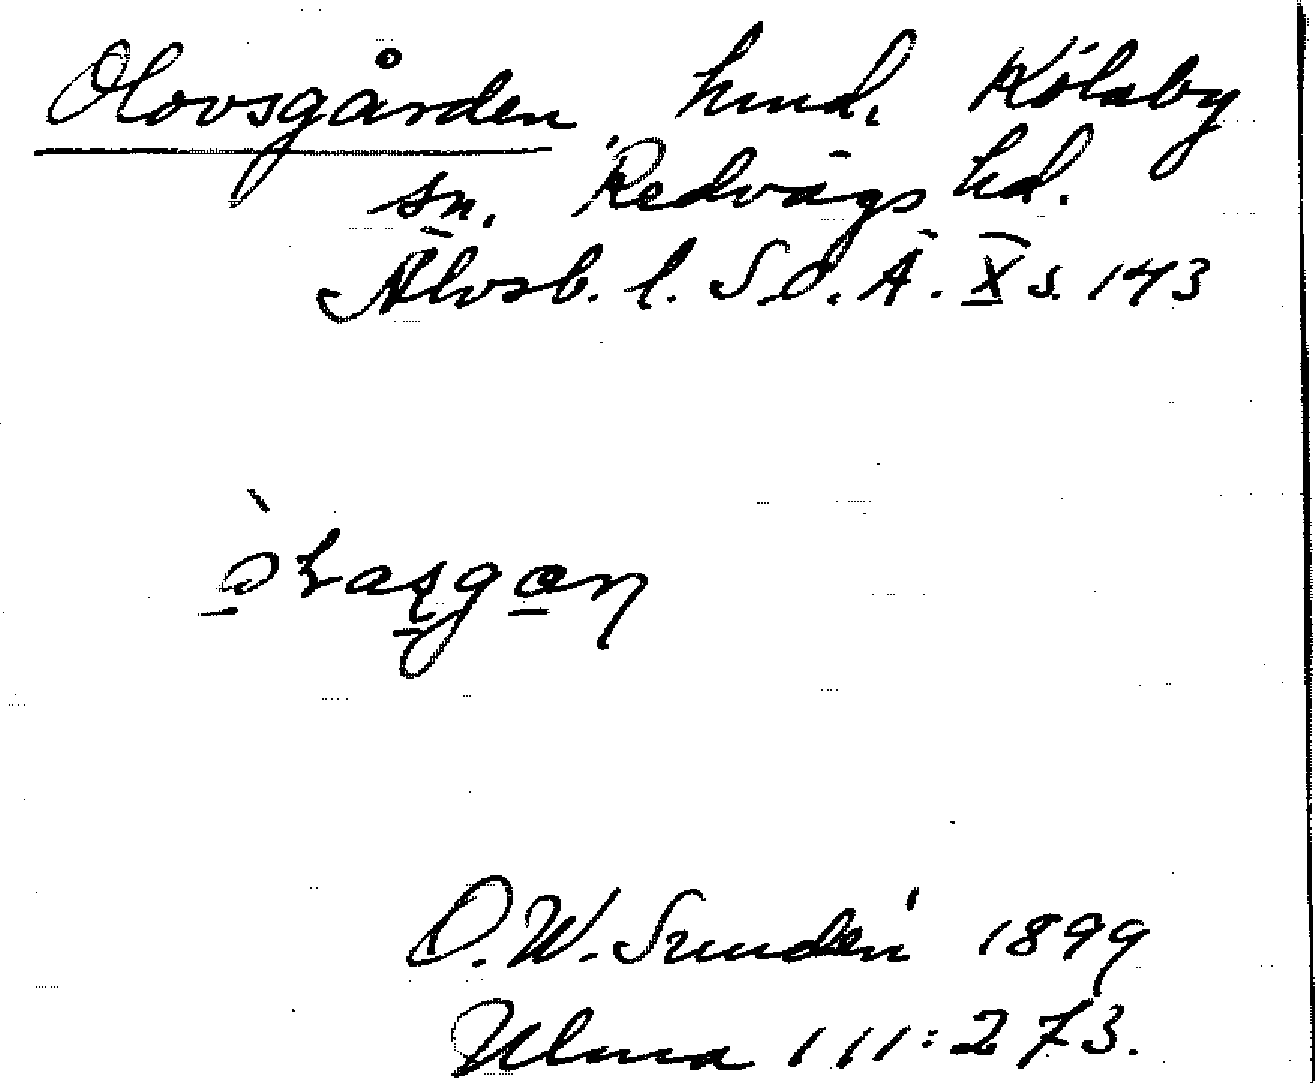 Olovsgården hmd. Kölaby
sn. Redvägs hd.
Älvsb. l. S.O.Ä. X s. 143
O. W. Sundén 1899
Ulma 111:273.